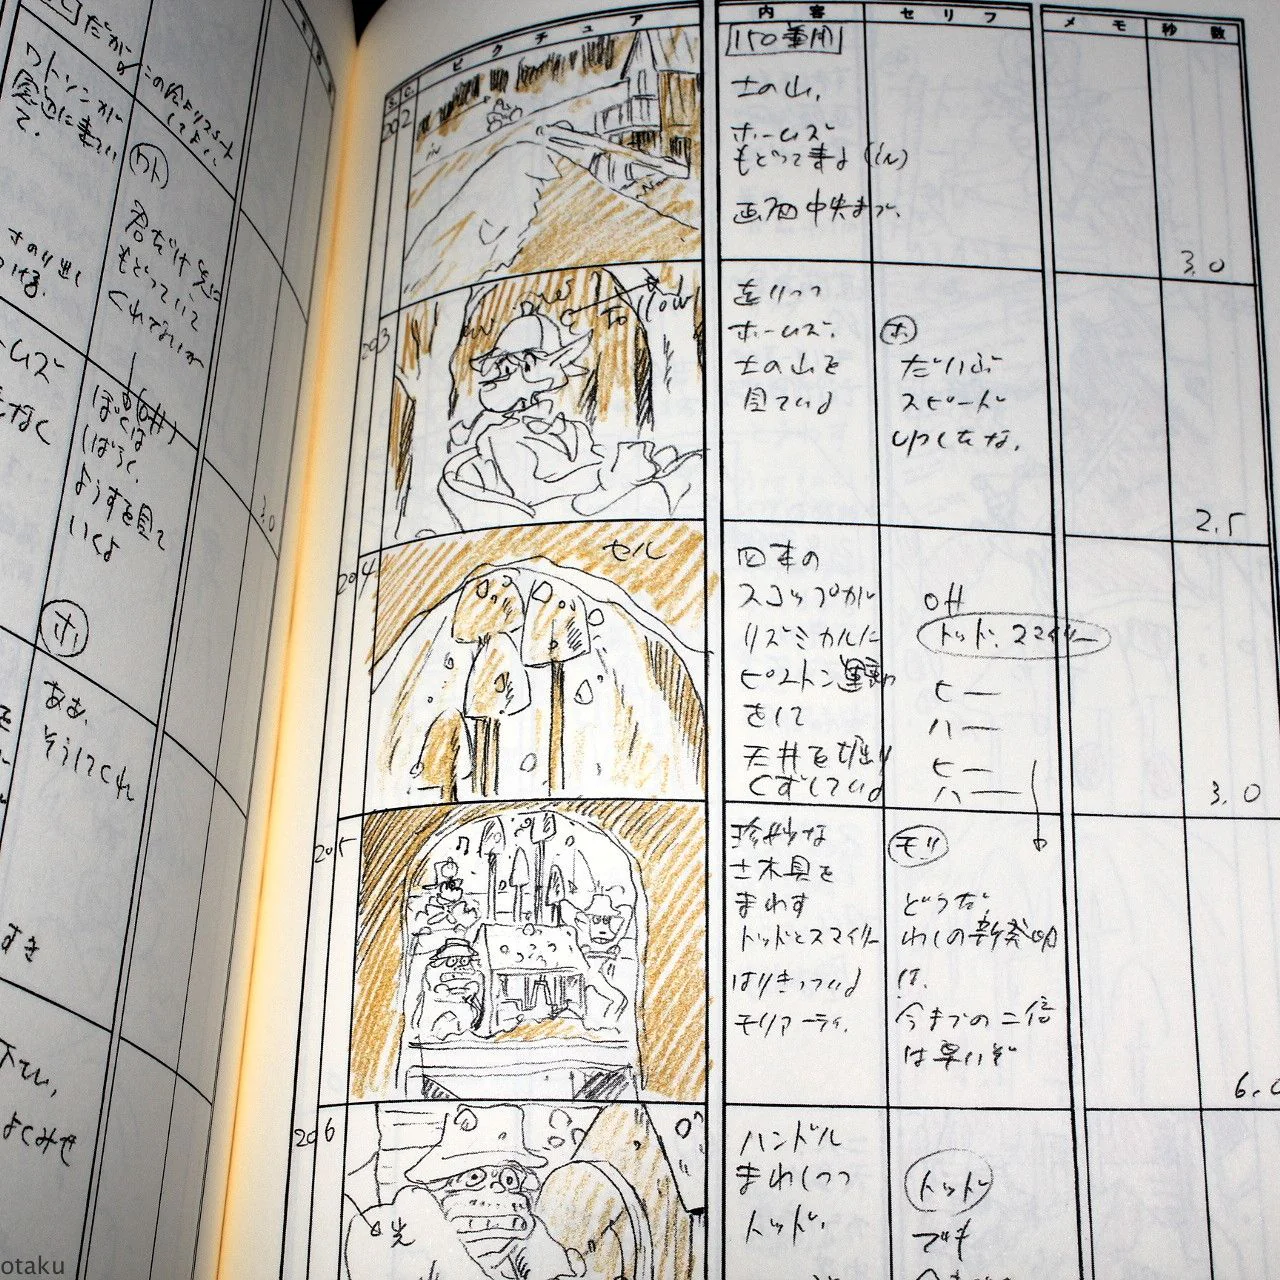 だが
この絵よりスタート
してよい
ワトソンが
窓辺に来てい
て、
ワト
君だけ先に
もどっていて
くれないか
ぼくは
しばらく
ようすを見て
いくよ
3.0
ホ
ああ、
そうしてくれ
すき
下てい,
よくみせ
ピクチュア
内容
セリフ
メモ
秒数
S.
C.
202
150乗用
土の山、
ホームズ
もどって来る (in)
画面中央まで、
3.0
203
to
slow
走りつつ
ホームズ、
土の山を
見ている
ホ
だいぶ
スピード
ゆくたな,
2.5
204
セル
四本の
スコップが
リズミカルに
ピストン運動
をして
天井を堀り
くずしている
off
トッド、スマイリー
ヒー
ハー
ヒー
ハー
3.0
205
珍妙な
土木具を
まわす
トッドとスマイリー
はりきっている
モリアーティ.
モリ
どうだ
わしの新発明
は、
今までの二倍
は早いぞ
6.0
206
ハンドル
まわしつつ
トッド、
トッド
でも
otaku